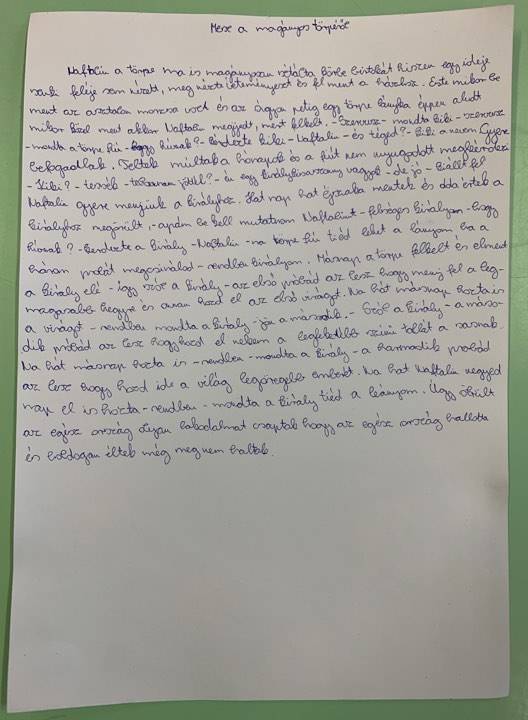 Mese a magányos törpéről
Naftalin a törpe ma is magányosan sétálta körbe birtokát hiszen egy ideje
senki feléje sem nézett, meg nézte veteményest és fel ment a házhoz. Este mikor be
ment az asztalon morzsa volt és az ágyán pedig egy törpe lányka éppen aludt
mikor közel ment akkor Naftalin megijedt, mert felkelt. - Szervusz - mondta Kiki - szervusz
- mondta a törpe fiú - hogy hívnak? - kérdezte Kiki - Naftalin - és téged? - Kiki a nevem Gyere
befogadlak. Teltek múltak a hónapok és a fiút nem nyugodott megkérdezi
- Kiki? - tessék - honnan jöttél? - én egy királykisasszony vagyok - de jó - kiállt fel
Naftalin gyere menjünk a királyhoz. Hat nap hat éjszaka mentek és oda értek a
királyhoz megörült, - apám be kell mutatnom Naftalint - felséges királyom - hogy
hívnak? - kérdezte a király - Naftalin - na törpe fiú tiéd lehet a lányom ha a
három próbát megcsinálod - rendben királyom. Másnap a törpe felkelt és elment
a király elé - így szólt a király - az első próbád az lesz hogy menj fel a leg-
magasabb hegyre és onnan hozd el az első virágot. Na hát másnap hozta is
a virágot - rendben mondta a király - jön a második. - Szólt a király - a máso-
dik próbád az lesz hogy hozd el nekem a legfeketébb színű tollát a sasnak.
Na hát másnap hozta is - rendben - mondta a király - a harmadik próbád
az lesz hogy hozd ide a világ legöregebb emberét. Na hát Naftalin negyed
nap el is hozta - rendben - mondta a király tiéd a leányom. Úgy örült
az egész ország olyan lakodalmat csaptak hogy az egész ország hallotta
és boldogan éltek még meg nem haltak.